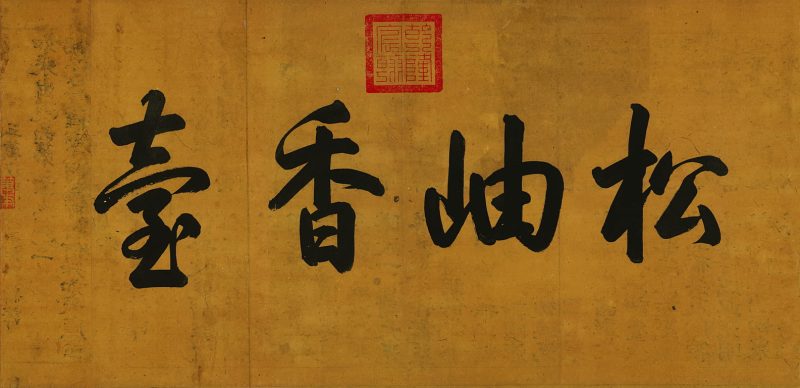 乾隆
宸翰
松岫香臺